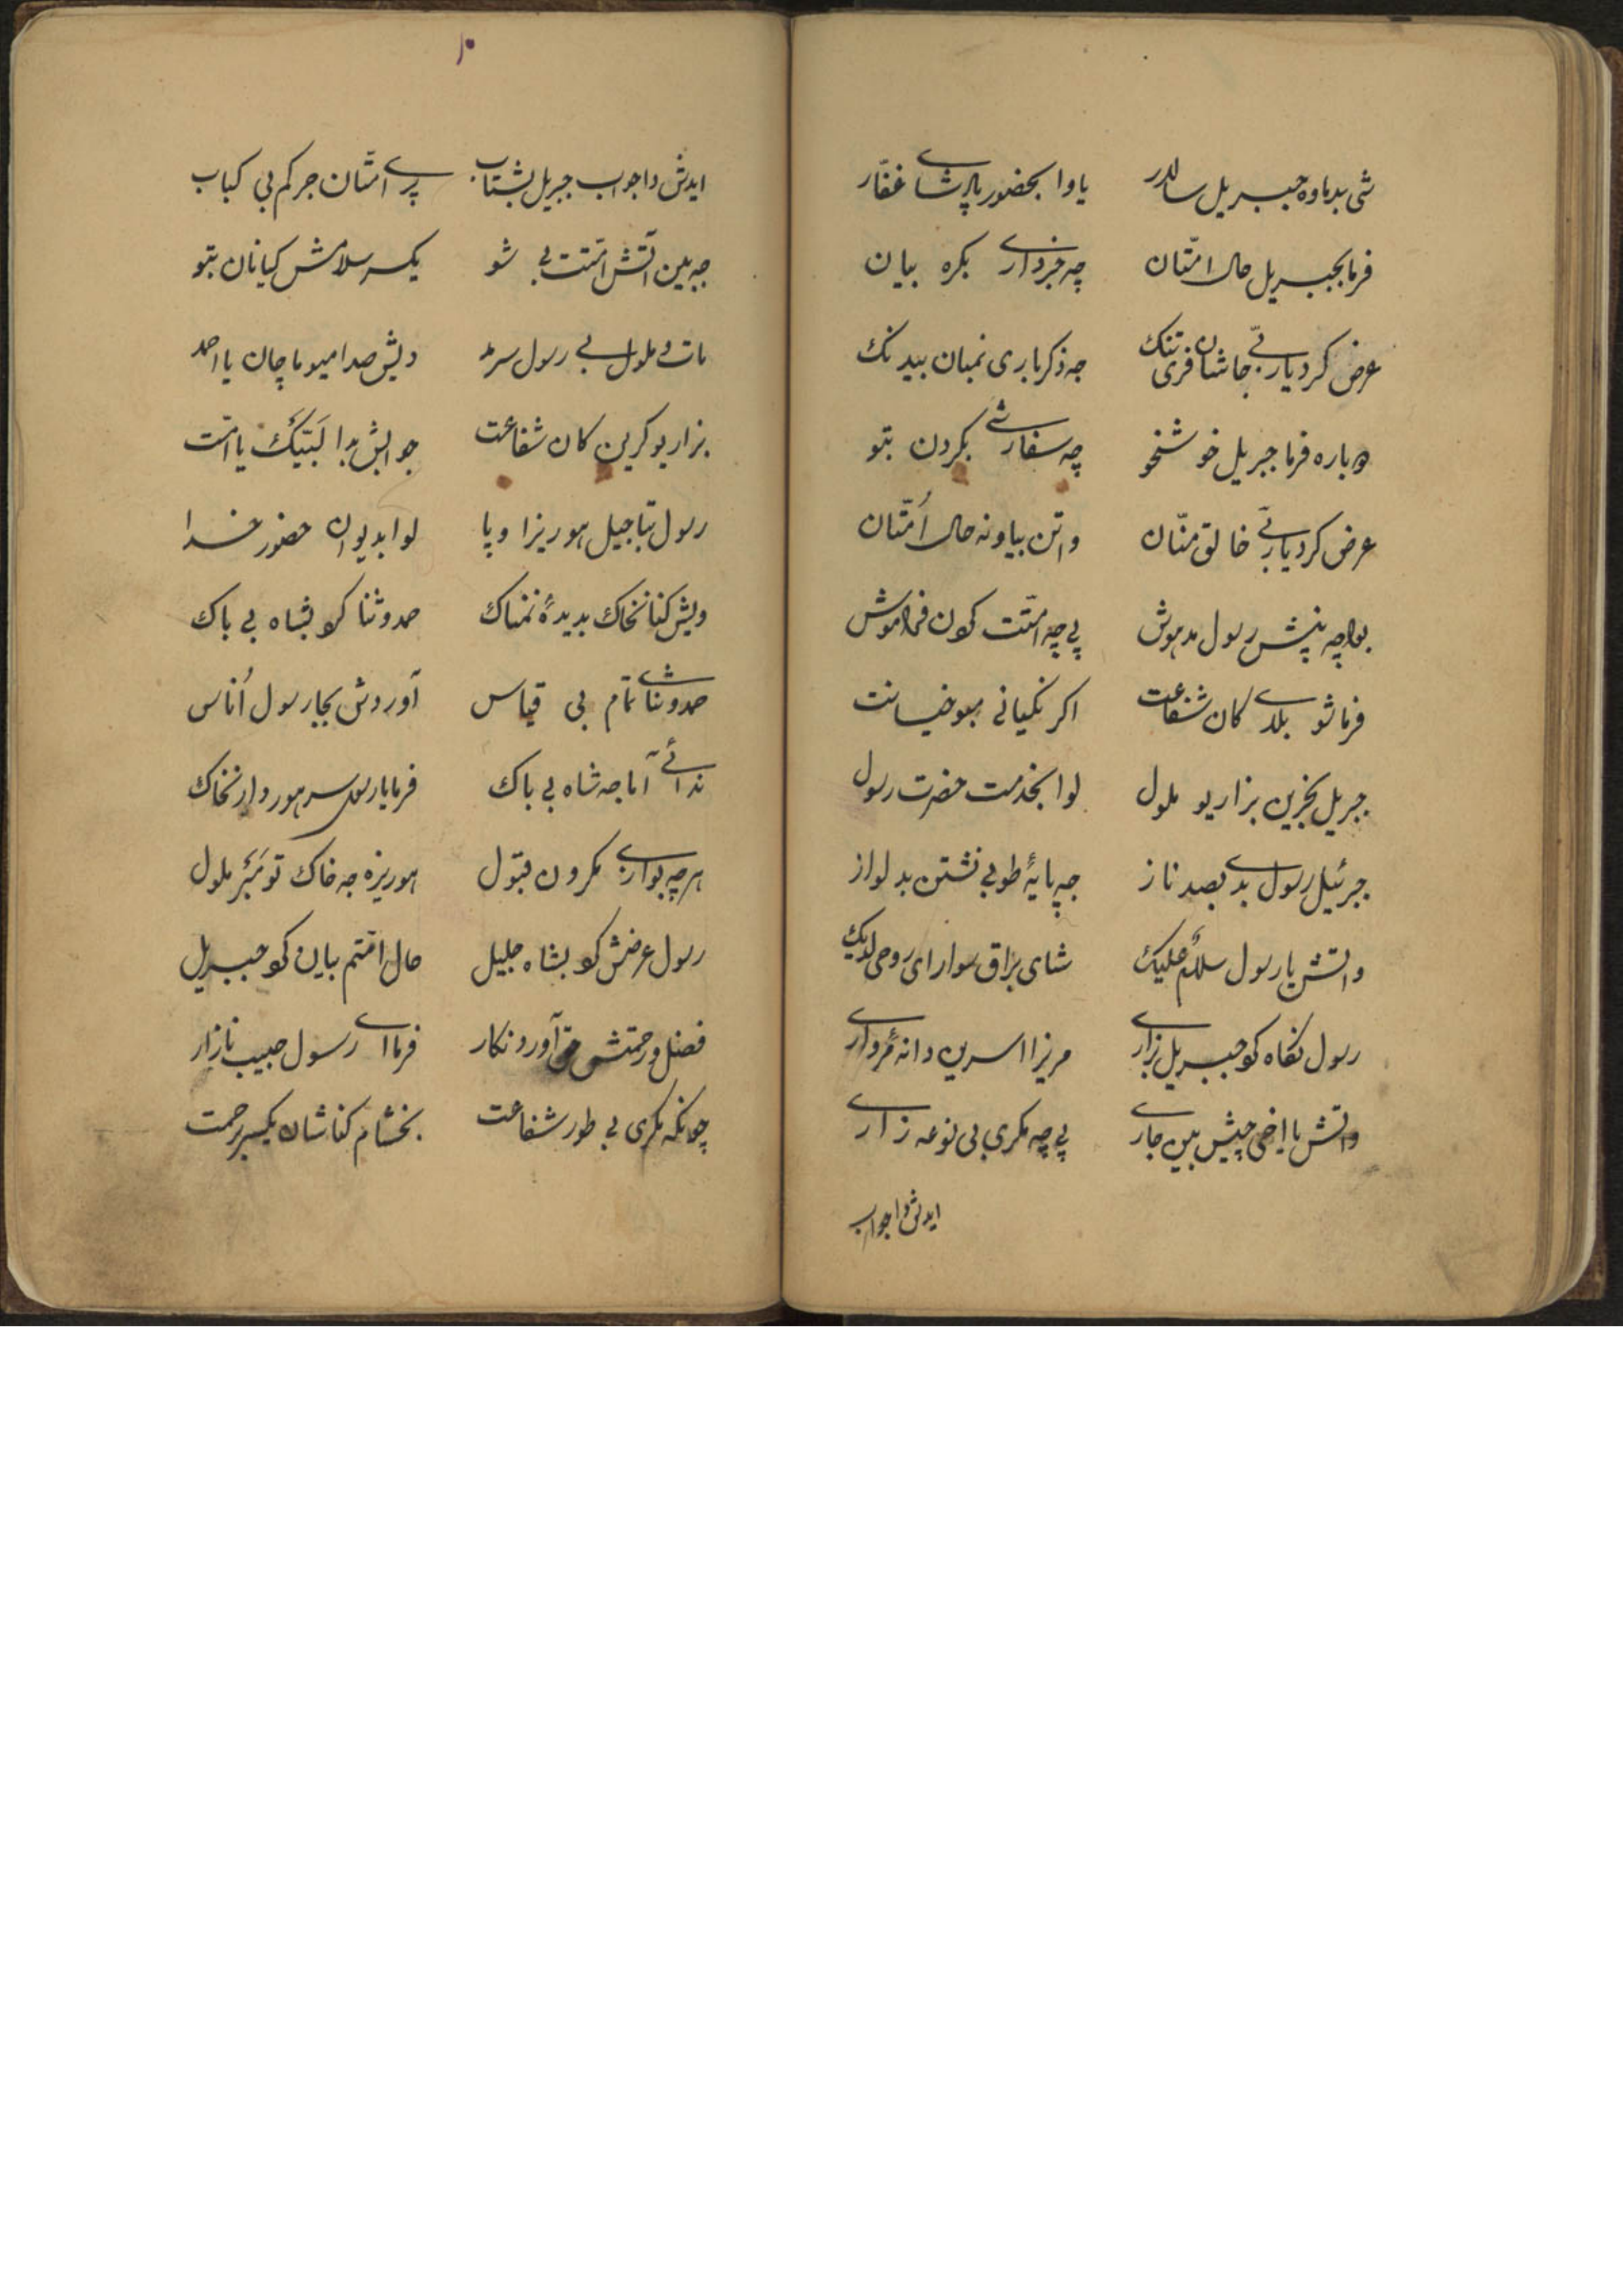 شی بدماوه جبریل سالار یاوا بحضور پادشای غفّار
فرما بجبریل حال امّتان چه خبرداری بکره بیان
عرض کرد یاربّی جاشان فری تنک جه ذکر باری نمبان بیدنک
دوباره فرما جبریل خوشخو چه سفارشی بکردن بتو
عرض کرد یاربّی خالق منّان واتن بیاونه حال اُمّتان
بواچه پیش رسول مدهوش پی چه امّتت کردن فراموش
فرما شو بلای کان شفاعت اکر نکیانی مبو خیانت
جبریل بخیزین بزاریو ملول لوا بخدمت حضرت رسول
جبرئیل رسول بدی بصد ناز جه پایهٔ طوبی نشتن بدلواز
واتش یا رسول سلامٌ علیک شای براق سوارای روحی لدیک
رسول نکاه کو جبریل بزاری مریزا اسرین دانهٔ مرواری
واتش یا اخی چیش بین جاری پی چه مکری بی نوعه زاری
ایدش واجواب
۱۰
ایدش واجواب جبریل بشتاب پری امّتان جرکم بی کباب
جه بین آتش امّتت بی شو یکسر سلامش کیانان بتو
مات و ملول بی رسول سرمد دیش صدا میو ماچان یا احمد
بزاریو کرین کان شفاعت جوابش بدا لَبّیک یا امّت
رسول بتاجیل هوریزا وپا لوا بدیوان حضور خدا
ویش کنا نخاک بدیدهٔ نمناک حمد و ثنا کرد بشاه بی باک
حمد و ثنای تمام بی قیاس آوردش بجا رسول اُناس
ندائی آما جه شاه بی باک فرما یا رسول سر هوردار نخاک
هرچه بواری مکرون قبول هوریزه جه خاک تو مَبَر ملول
رسول عرضش کرد بشاه جلیل حال امّتم بیان کو جبریل
فضل و رحمتش آورد و نکار فرما ای رسول حبیب نازار
چونکه مکری بی طور شفاعت بخشام کناشان یکسر برحمت